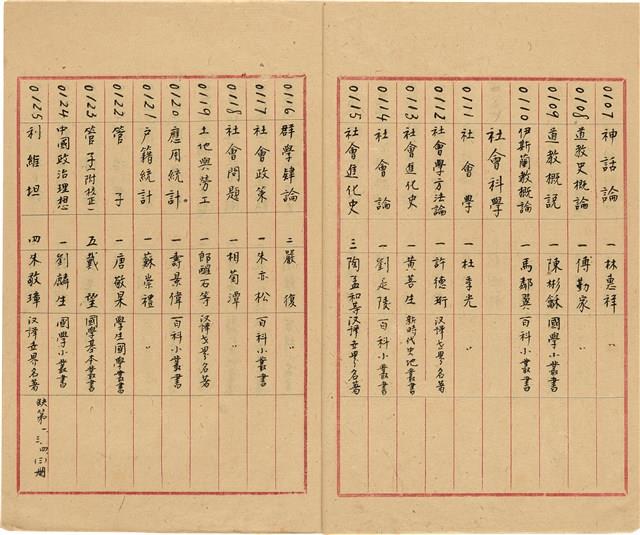 0107 神話論 一 林惠祥 〃
0108 道教史概論 一 傅勤家 〃
0109 道教概說 一 陳彬龢 國學小叢書
0110 伊斯蘭教概論 一 馬鄰翼 百科小叢書
社會科學
0111 社會學 一 杜季光 〃
0112 社會學方法論 一 許德珩 汉譯世界名著
0113 社會進化史 一 黃菩生 新時代史地叢書
0114 社會論 一 劉延陵 百科小叢書
0115 社會進化史 三 陶孟和等 汉譯世界名著
0116 群學肄論 二 嚴復 〃
0117 社會政策 一 朱亦松 百科小叢書
0118 社會問題 一 相菊潭 〃
0119 土地與勞工 一 郎醒石等 汉譯世界名著
0120 應用統計 一 壽景偉 百科小叢書
0121 户籍統計 一 蘇崇禮 〃
0122 管子 一 唐敬杲 學生國學叢書
0123 管子(附校正) 五 戴望 國學基本叢書
0124 中國政治理想 一 劉麟生 國學小叢書
0125 利維坦 四 朱敬璋 汉譯世界名著 缺第一、三、四、(三)册